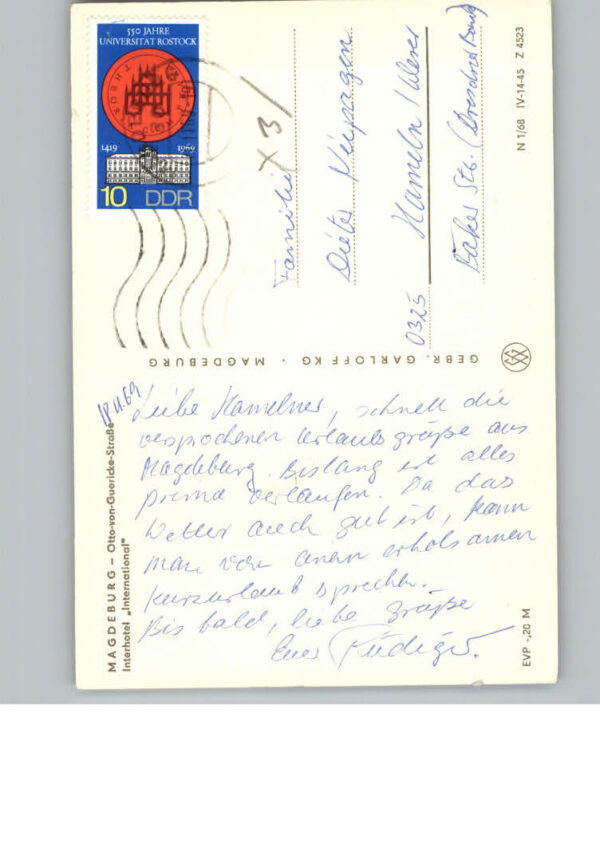 550 JAHRE
UNIVERSITÄT ROSTOCK
1419 1969
10 DDR
X 3/
Familie
Dieter
Hameln / Weser
0325
Str. (Dresdner Bank)
GEBR. GARLOFF KG · MAGDEBURG
N 1/68 IV-14-45 Z 4523
MAGDEBURG – Otto-von-Guericke-Straße
Interhotel „International"
EVP -,20 M
Liebe Hamelner, schnell die
versprochenen Urlaubsgrüße aus
Magdeburg. Bislang ist alles
prima verlaufen. Da das
Wetter auch gut ist, kann
man von einem erholsamen
Kurzurlaub sprechen.
Bis bald, liebe Grüße
Euer Rüdiger.